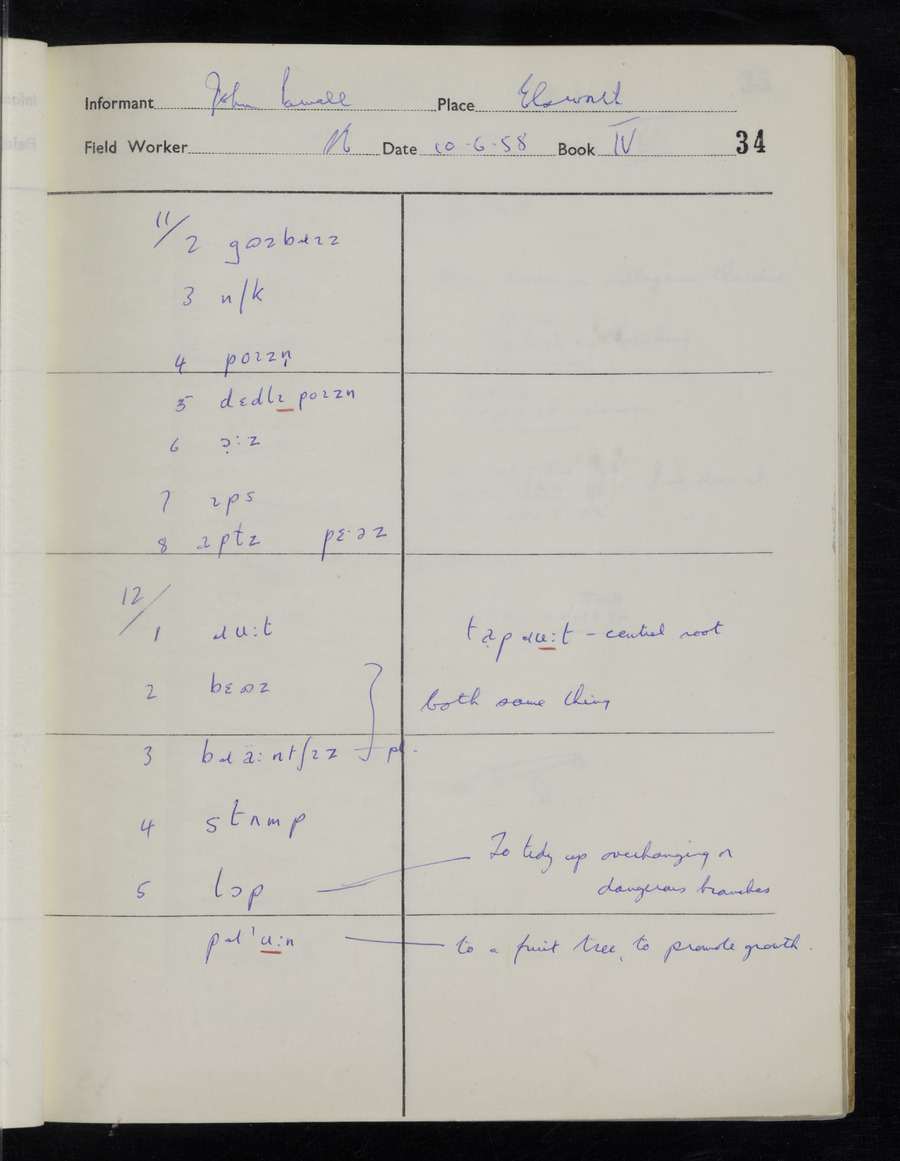 Informant John Place Elsworth
Field Worker Date 10-6-58 Book IV 34
11/
2 gɷzbəɹɪz
3 n/k
4 pɔɪzn̩
5 dɛdlɪ pɔɪzn
6 ɔ̣:z
7 ɪps
8 ɪptz pɛ·əz
12/
1 ɹu:t tapɹu:t – central root
2 bɛɷz both same thing
3 bɹa:ntʃɪz pl.
4 stʌmp
5 lɔp To tidy up overhanging or
dangerous branches
pɹ'u:n to a fruit tree, to promote growth.